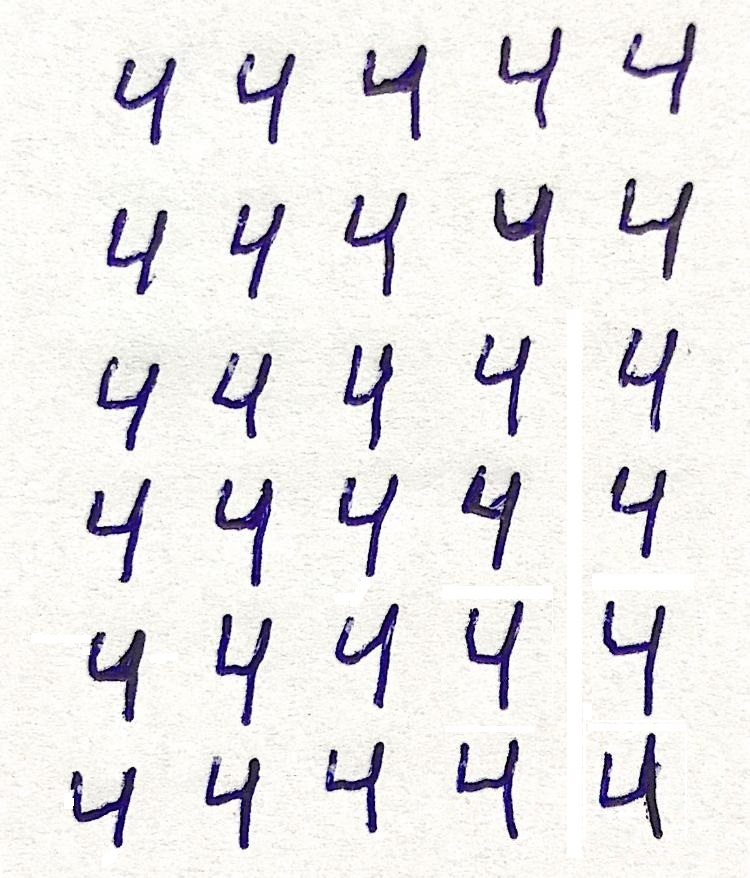 4 4 4 4 4
4 4 4 4 4
4 4 4 4 4
4 4 4 4 4
4 4 4 4 4
4 4 4 4 4